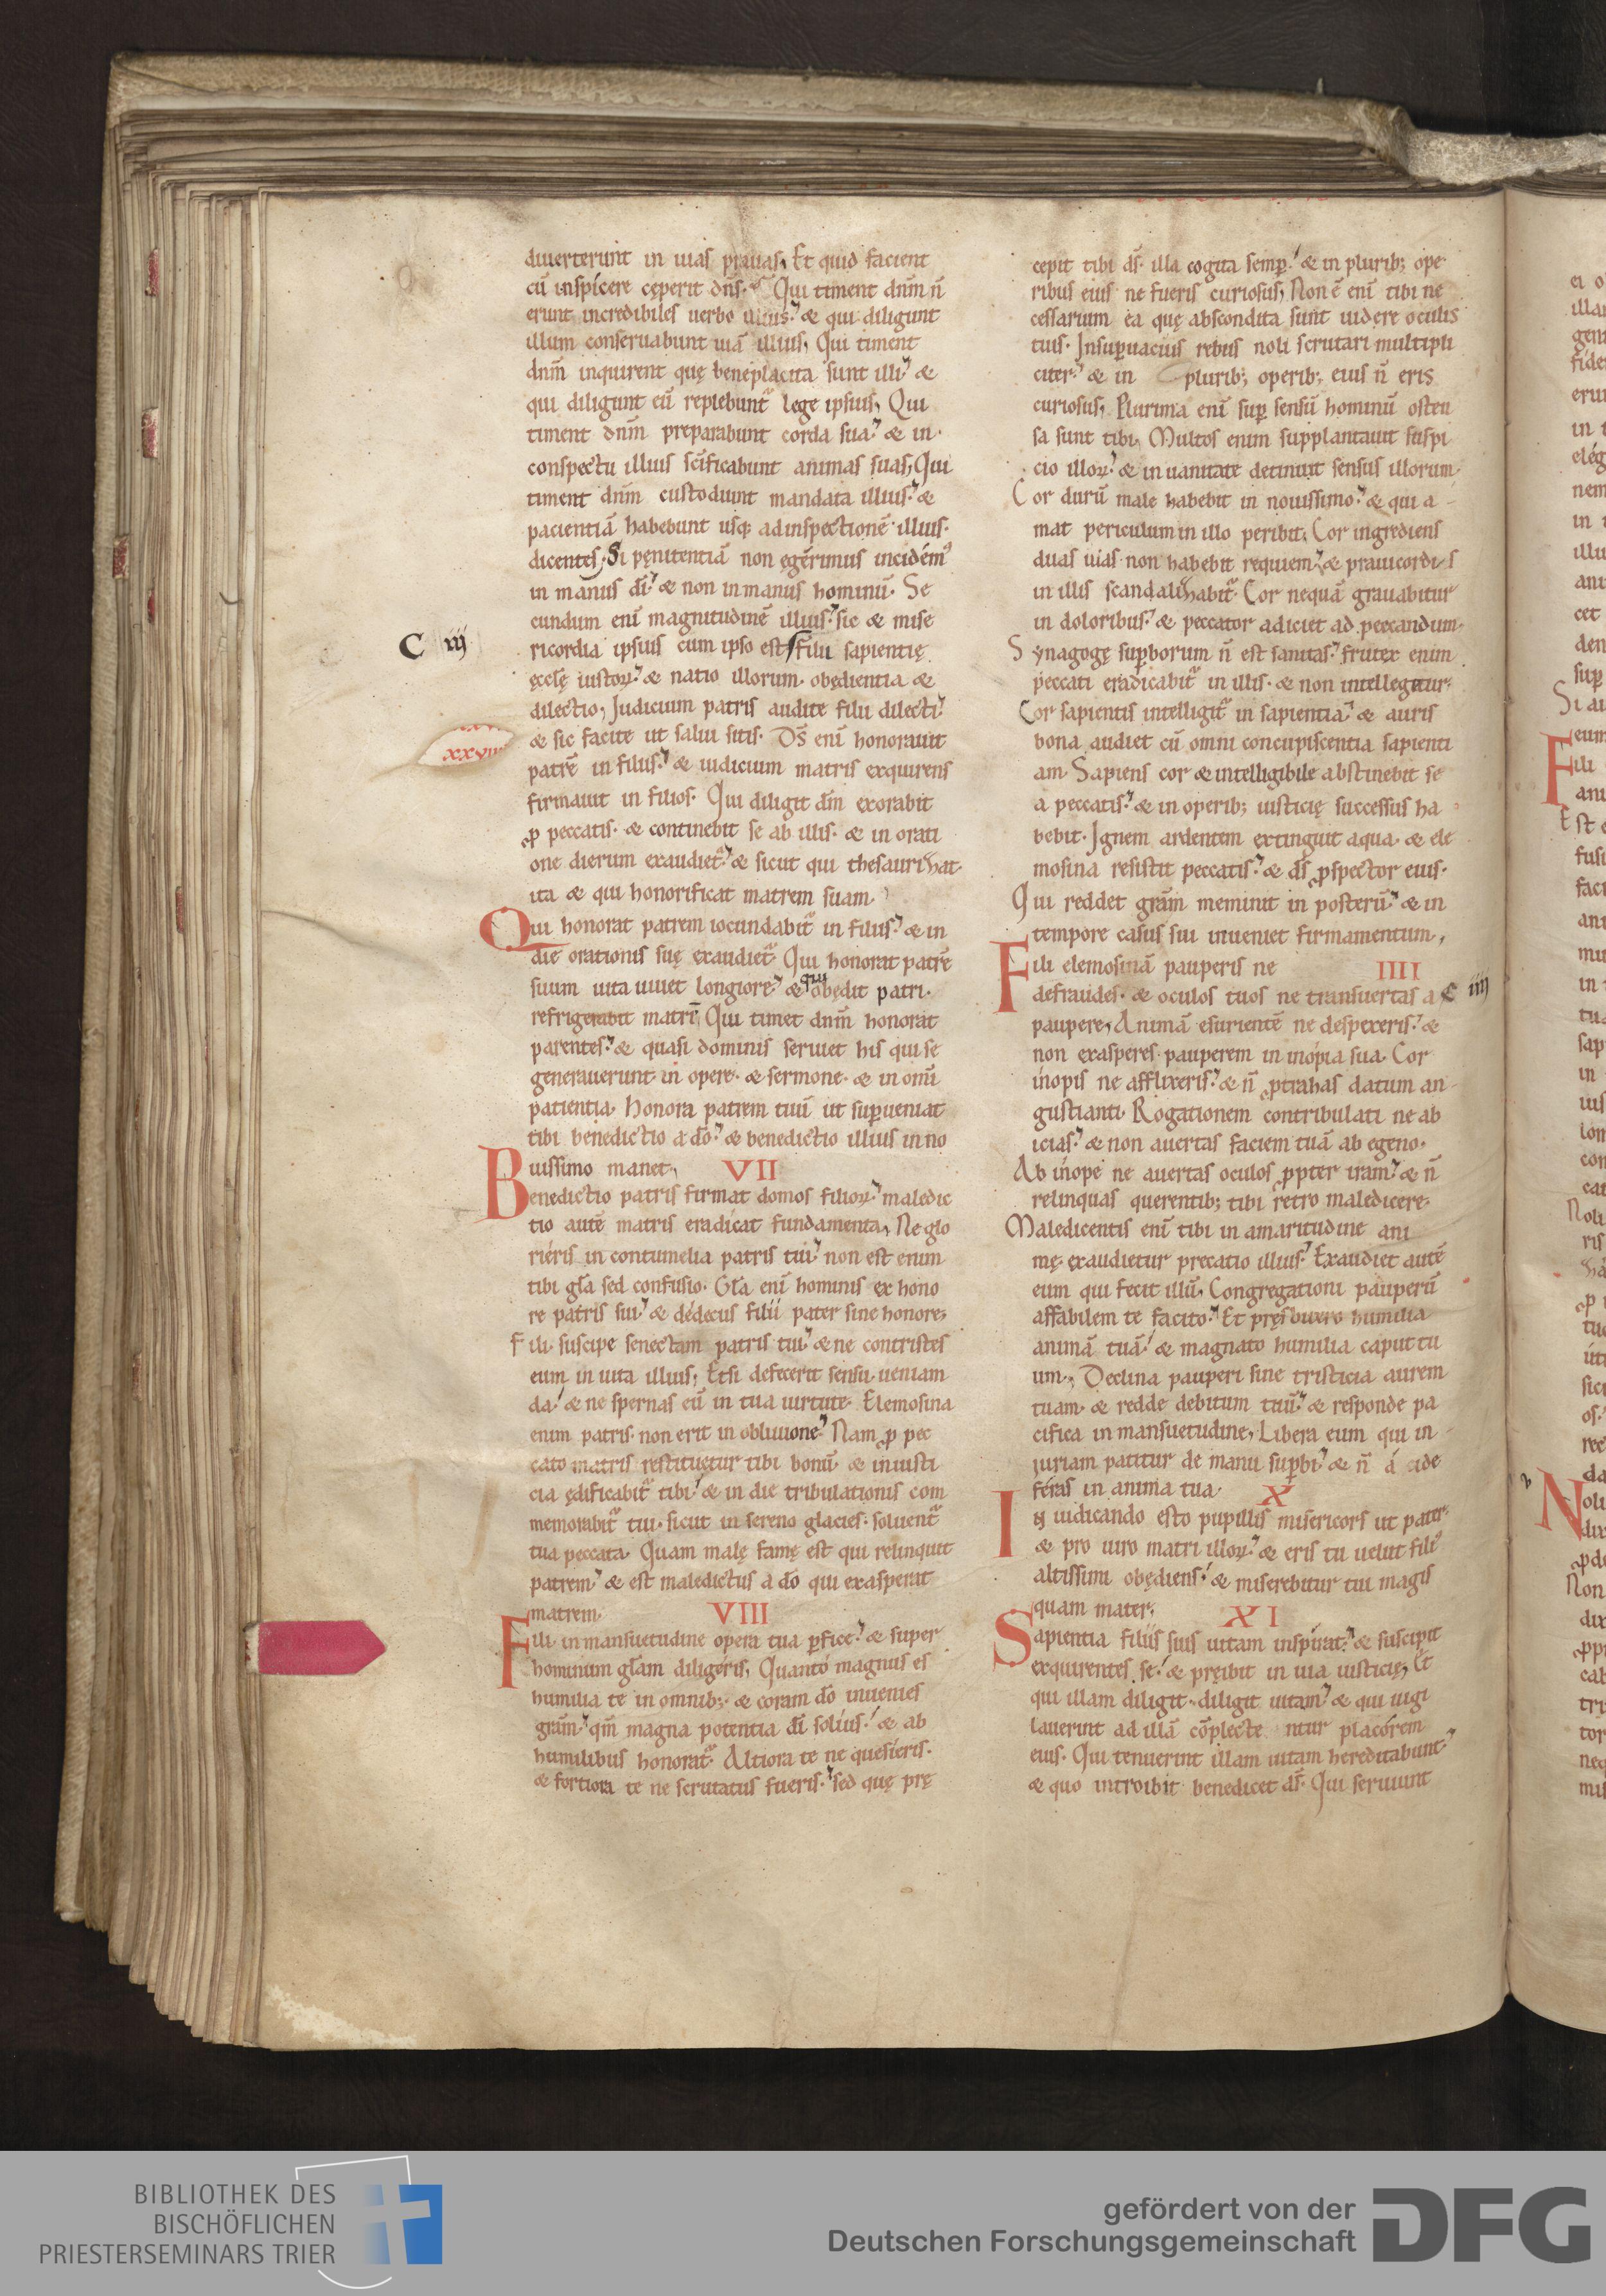 diuerterunt in uias prauas, Et quid facient
cū inspicere cęperit dn̄s. Qui timent dnm̄ n̄
erunt incredibiles uerbo illius. & qui diligunt
illum conseruabunt uiā illius, Qui timent
dnm̄ inquirent quę beneplacita sunt illi. &
qui diligunt eū replebunt᷑ lege ipsius, Qui
timent dnm̄ preparabunt corda sua. & in
conspectu illius sc̄ificabunt animas suas, Qui
timent dnm̄ custodiunt mandata illius. &
pacientiā habebunt usq; ad inspectionē illius.
dicentes, Si pęnitentiā non egerimus incidem᷒
in manus dī. & non in manus hominū. Se
cundum enī magnitudinē illius. sic & mise
C iij
ricordia ipsius cum ipso est, Filii sapientię
ęccl̄ę iustoꝝ. & natio illorum. obędientia &
dilectio, Iudicium patris audite filii dilecti.
& sic facite ut salui sitis. Ds̄ enī honorauit
patrē in filiis. & iudicium matris exquirens
firmauit in filios. Qui diligit dm̄ exorabit
ꝓ peccatis. & continebit se ab illis. & in orati
one dierum exaudiet᷑. & sicut qui thesaurizat.
ita & qui honorificat matrem suam
Qui honorat patrem iocundabit᷑ in filiis. & in
die orationis suę exaudiet᷑. Qui honorat patrē
suum uita uiuet longiore. & qui obędit patri.
refrigerabit matrī, Qui timet dnm̄ honorat
parentes. & quasi dominis seruiet his qui se
generauerunt in opere. & sermone. & in omī
patientia. Honora patrem tuū ut suꝑueniat
tibi benedictio a do᷒. & benedictio illius in no
uissimo manet, VII
Benedictio patris firmat domos filioꝝ. maledic
tio autē matris eradicat fundamenta, Ne glo
rieris in contumelia patris tui. non est enim
tibi gl̄a sed confusio. Gl̄a enī hominis ex hono
re patris sui. & dedecus filii pater sine honore,
Fili suscipe senectam patris tui. & ne contristes
eum in uita illius, Etsi defecerit sensu ueniam
da. & ne spernas eū in tua uirtute. Elemosina
enim patris non erit in obliuione. Nam ꝓ pec
cato matris restituetur tibi bonū. & in iusti
cia ędificabit᷑ tibi. & in die tribulationis com
memorabit᷑ tui. sicut in sereno glacies. soluent᷑
tua peccata. Quam malę famę est qui relinquit
patrem. & est maledictus a do᷒ qui exasperat
matrem. VIII
Fili in mansuetudine opera tua ꝑfice. & super
hominum gl̄am diligeris, Quanto magnus es
humilia te in omnib;. & coram do᷒ inuenies
gr̄am. qm̄ magna potentia dī solius. & ab
humilibus honorat᷑. Altiora te ne quesieris.
& fortiora te ne scrutatus fueris. sed quę prę
cepit tibi ds̄. illa cogita semꝑ. & in plurib; ope
ribus eius ne fueris curiosus, Non ē enī tibi ne
cessarium ea quę abscondita sunt uidere oculis
tuis. Insuꝑuacuis rebus noli scrutari multipli
citer. & in plurib; operib; eius n̄ eris
curiosus, Plurima enī suꝑ sensū hominū osten
sa sunt tibi. Multos enim supplantauit suspi
cio illoꝝ. & in uanitate detinuit sensus illorum.
Cor durū male habebit in nouissimo. & qui a
mat periculum in illo peribit, Cor ingrediens
duas uias non habebit requiem. & prauicordis
in illis scandalizabit᷑. Cor nequā grauabitur
in doloribus. & peccator adiciet ad peccandum.
Synagogę suꝑborum n̄ est sanitas. frutex enim
peccati eradicabit᷑ in illis. & non intellegitur.
Cor sapientis intelligit᷑ in sapientia. & auris
bona audiet cū omni concupiscentia sapienti
am. Sapiens cor & intelligibile abstinebit se
a peccatis. & in operib; iusticię successus ha
bebit. Ignem ardentem extinguit aqua. & ele
mosina resistit peccatis. & ds̄ ꝓspector eius.
Qui reddet gr̄am meminit in posterū. & in
tempore casus sui inueniet firmamentum,
Fili elemosinā pauperis ne IIII
defraudes. & oculos tuos ne transuertas a C iiij
paupere, Animā esurientē ne despexeris. &
non exasperes pauperem in inopia sua. Cor
inopis ne afflixeris. & n̄ ꝓtrahas datum an
gustianti. Rogationem contribulati ne ab
icias. & non auertas faciem tuā ab egeno.
Ab inope ne auertas oculos ꝓpter iram. & n̄
relinquas querentib; tibi retro maledicere.
Maledicentis enī tibi in amaritudine ani
mę exaudietur precatio illius. Exaudiet autē
eum qui fecit illū, Congregationi pauperū
affabilem te facito. Et pręsbitero humilia
animā tuā. & magnato humilia caput tu
um, Declina pauperi sine tristicia aurem
tuam. & redde debitum tuū. & responde pa
cifica in mansuetudine, Libera eum qui in
iuriam patitur de manu suꝑbi. & n̄ a cide
feras in anima tua. X
In iudicando esto pupillis misericors ut pater.
& pro uiro matri illoꝝ. & eris tu uelut fili᷒
altissimi obędiens. & miserebitur tui magis
quam mater. XI
Sapientia filiis suis uitam inspirat. & suscipit
exquirentes se. & pręibit in uia iusticię, Et
qui illam diligit. diligit uitam. & qui uigi
lauerint ad illā cōplectentur placorem
eius. Qui tenuerint illam uitam hereditabunt.
& quo introibit benedicet ds̄. Qui seruiunt
BIBLIOTHEK DES
BISCHÖFLICHEN
PRIESTERSEMINARS TRIER
gefördert von der
Deutschen Forschungsgemeinschaft
DFG